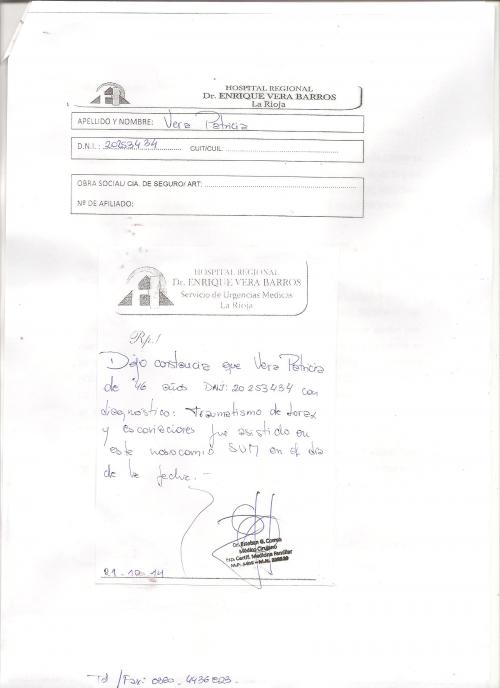 HOSPITAL REGIONAL
Dr. ENRIQUE VERA BARROS
La Rioja
APELLIDO Y NOMBRE: Vera Patricia
D.N.I.: 20253434 CUIT/CUIL:
OBRA SOCIAL/ CIA. DE SEGURO/ ART:
Nº DE AFILIADO:
HOSPITAL REGIONAL
Dr. ENRIQUE VERA BARROS
Servicio de Urgencias Medicas
La Rioja
Rp./
Dejo constancia que Vera Patricia
de 46 años DNI: 20253434 con
diagnóstico: Traumatismo de torax
y escoriaciones fue asistido en
este nosocomio SUM en el día
de la fecha.-
Dr. Esteban G.
Médico Cirujano
Esp. Certif. Medicina Familiar
21-10-14
Tel /Fax: 0380-4436823-